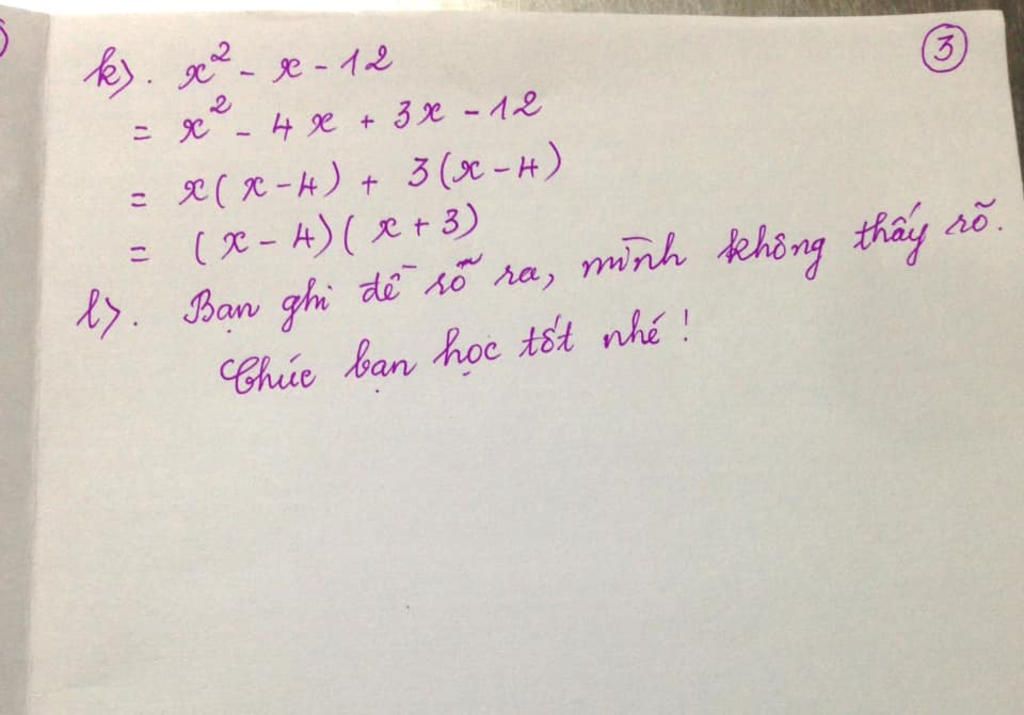 ③
k). x² - x - 12
= x² - 4x + 3x - 12
= x(x-4) + 3(x-4)
= (x-4)(x+3)
l). Bạn ghi đề rõ ra, mình không thấy rõ.
Chúc bạn học tốt nhé!